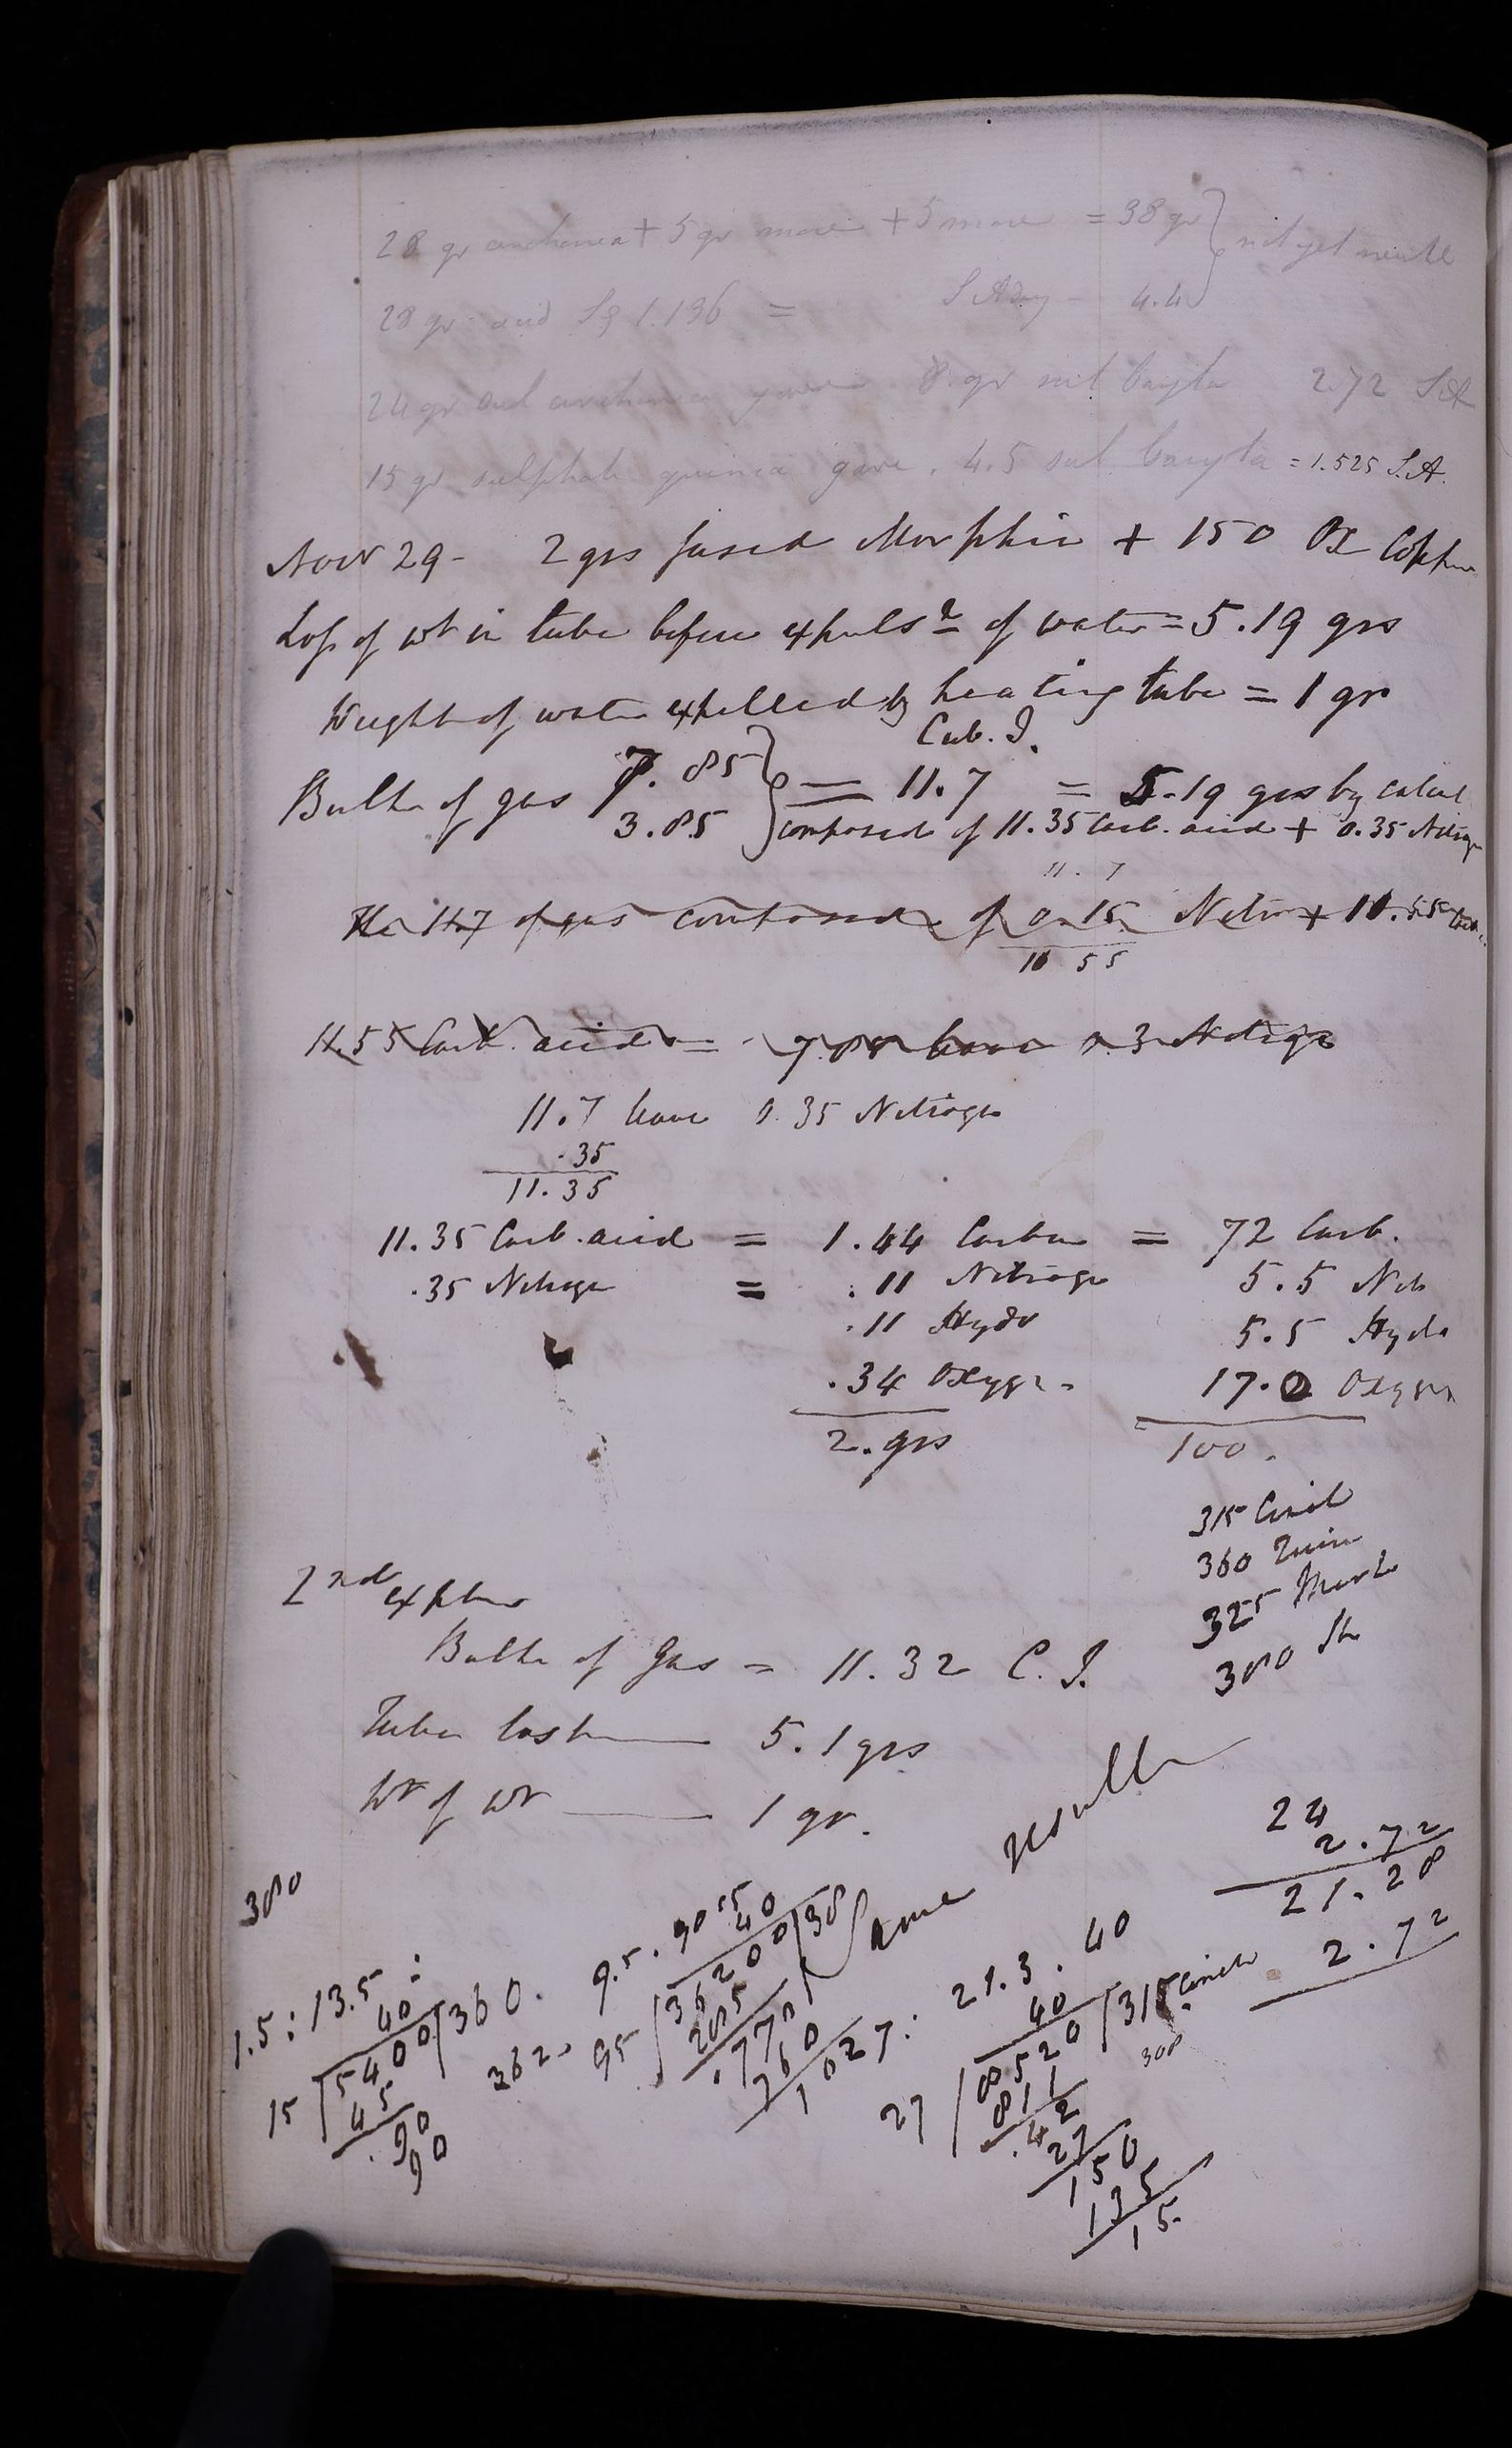 28 gr cinchonia + 5 gr more + 5 more = 38 gr } not yet neutl
28 gr acid Sg 1.136 = S A dry - 4.4
24 gr sul cinchonia gave 8 gr sul baryta 2.72 S.A
15 gr sulphate quinia gave . 4.5 sul baryta = 1.525 S.A.
Nov 29 - 2 grs fused Morphia + 150 Ox Copper
Loss of wt in tube before expulsn of water = 5.19 grs
Weight of water expelled by heating tube = 1 gr
Cub. I.
Bulk of gas 7.85 } = 11.7 = 5.19 grs by calcul
3.85 } composed of 11.35 Carb. acid + 0.35 Nitrogn
11.7
The 11.7 of gas composed of 0.15 Nitro + 11.55 Carb
11 55
11.55 Carb. acid = 7.88 have 0.3 Nitrogn
11.7 have 0.35 Nitrogn
.35
11.35
11.35 Carb. acid = 1.44 Carbon = 72 Carb.
.35 Nitrogn = .11 Nitrogn 5.5 Nit
.11 Hydr 5.5 Hydr
.34 Oxygn. 17.0 Oxygn
2. grs 100.
315 Cinch
360 Quin
325 Morph
380 St
2nd exptmn
Bulk of Gas = 11.32 C. I.
Tube lost — 5.1 grs
Wt of Wr — 1 gr.
Same result
24
2.72
21.28
2.72
380
1.5 : 13.5 :
40
15 / 5400 / 360.
45
.90
90
362.
9.5 . 90.5
40
95 / 36200 / 38
285
.770
760
10
27 : 21.3 . 40
40
27 / 8520 / 315 Cinch
308
811
.42
27
150
135
15.